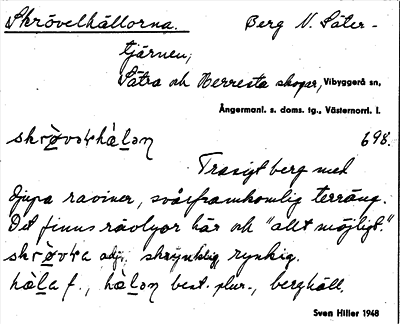 Skrövelhällorna. Berg N. Säter-
tjärnen,
Sätra och Herresta skogar, Vibyggerå sn,
Ångermanl. s. doms. tg., Västernorrl. l.
698.
Trasigt berg med
djupa raviner, svårframkomlig terräng.
Det finns rävlyor här och "allt möjligt."
adj. skrynklig, rynkig.
f., best. plur., berghäll.
Sven Hiller 1948